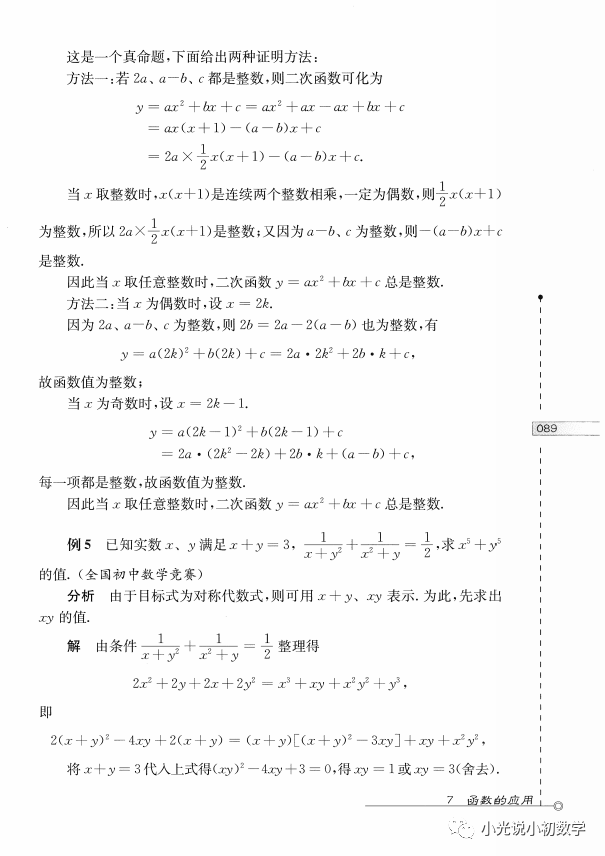 这是一个真命题,下面给出两种证明方法:
方法一:若 2a、a－b、c 都是整数,则二次函数可化为
y = ax² + bx + c = ax² + ax − ax + bx + c
= ax(x+1) − (a−b)x + c
= 2a × 1/2 x(x+1) − (a−b)x + c.
当 x 取整数时,x(x+1)是连续两个整数相乘,一定为偶数,则 1/2 x(x+1)
为整数,所以 2a× 1/2 x(x+1)是整数;又因为 a－b、c 为整数,则－(a－b)x＋c
是整数.
因此当 x 取任意整数时,二次函数 y = ax² + bx + c 总是整数.
方法二:当 x 为偶数时,设 x = 2k.
因为 2a、a－b、c 为整数,则 2b = 2a − 2(a − b) 也为整数,有
y = a(2k)² + b(2k) + c = 2a · 2k² + 2b · k + c,
故函数值为整数;
当 x 为奇数时,设 x = 2k − 1.
y = a(2k−1)² + b(2k−1) + c
= 2a · (2k² − 2k) + 2b · k + (a − b) + c,
每一项都是整数,故函数值为整数.
因此当 x 取任意整数时,二次函数 y = ax² + bx + c 总是整数.
089
例5 已知实数 x、y 满足 x + y = 3, 1/(x+y²) + 1/(x²+y) = 1/2,求 x⁵ + y⁵
的值.(全国初中数学竞赛)
分析 由于目标式为对称代数式,则可用 x + y、xy 表示. 为此,先求出
xy 的值.
解 由条件 1/(x+y²) + 1/(x²+y) = 1/2 整理得
2x² + 2y + 2x + 2y² = x³ + xy + x²y² + y³,
即
2(x + y)² − 4xy + 2(x + y) = (x + y)[(x + y)² − 3xy] + xy + x²y²,
将 x＋y＝3 代入上式得(xy)²－4xy＋3＝0,得 xy＝1 或 xy＝3(舍去).
7 函数的应用
小光说小初数学